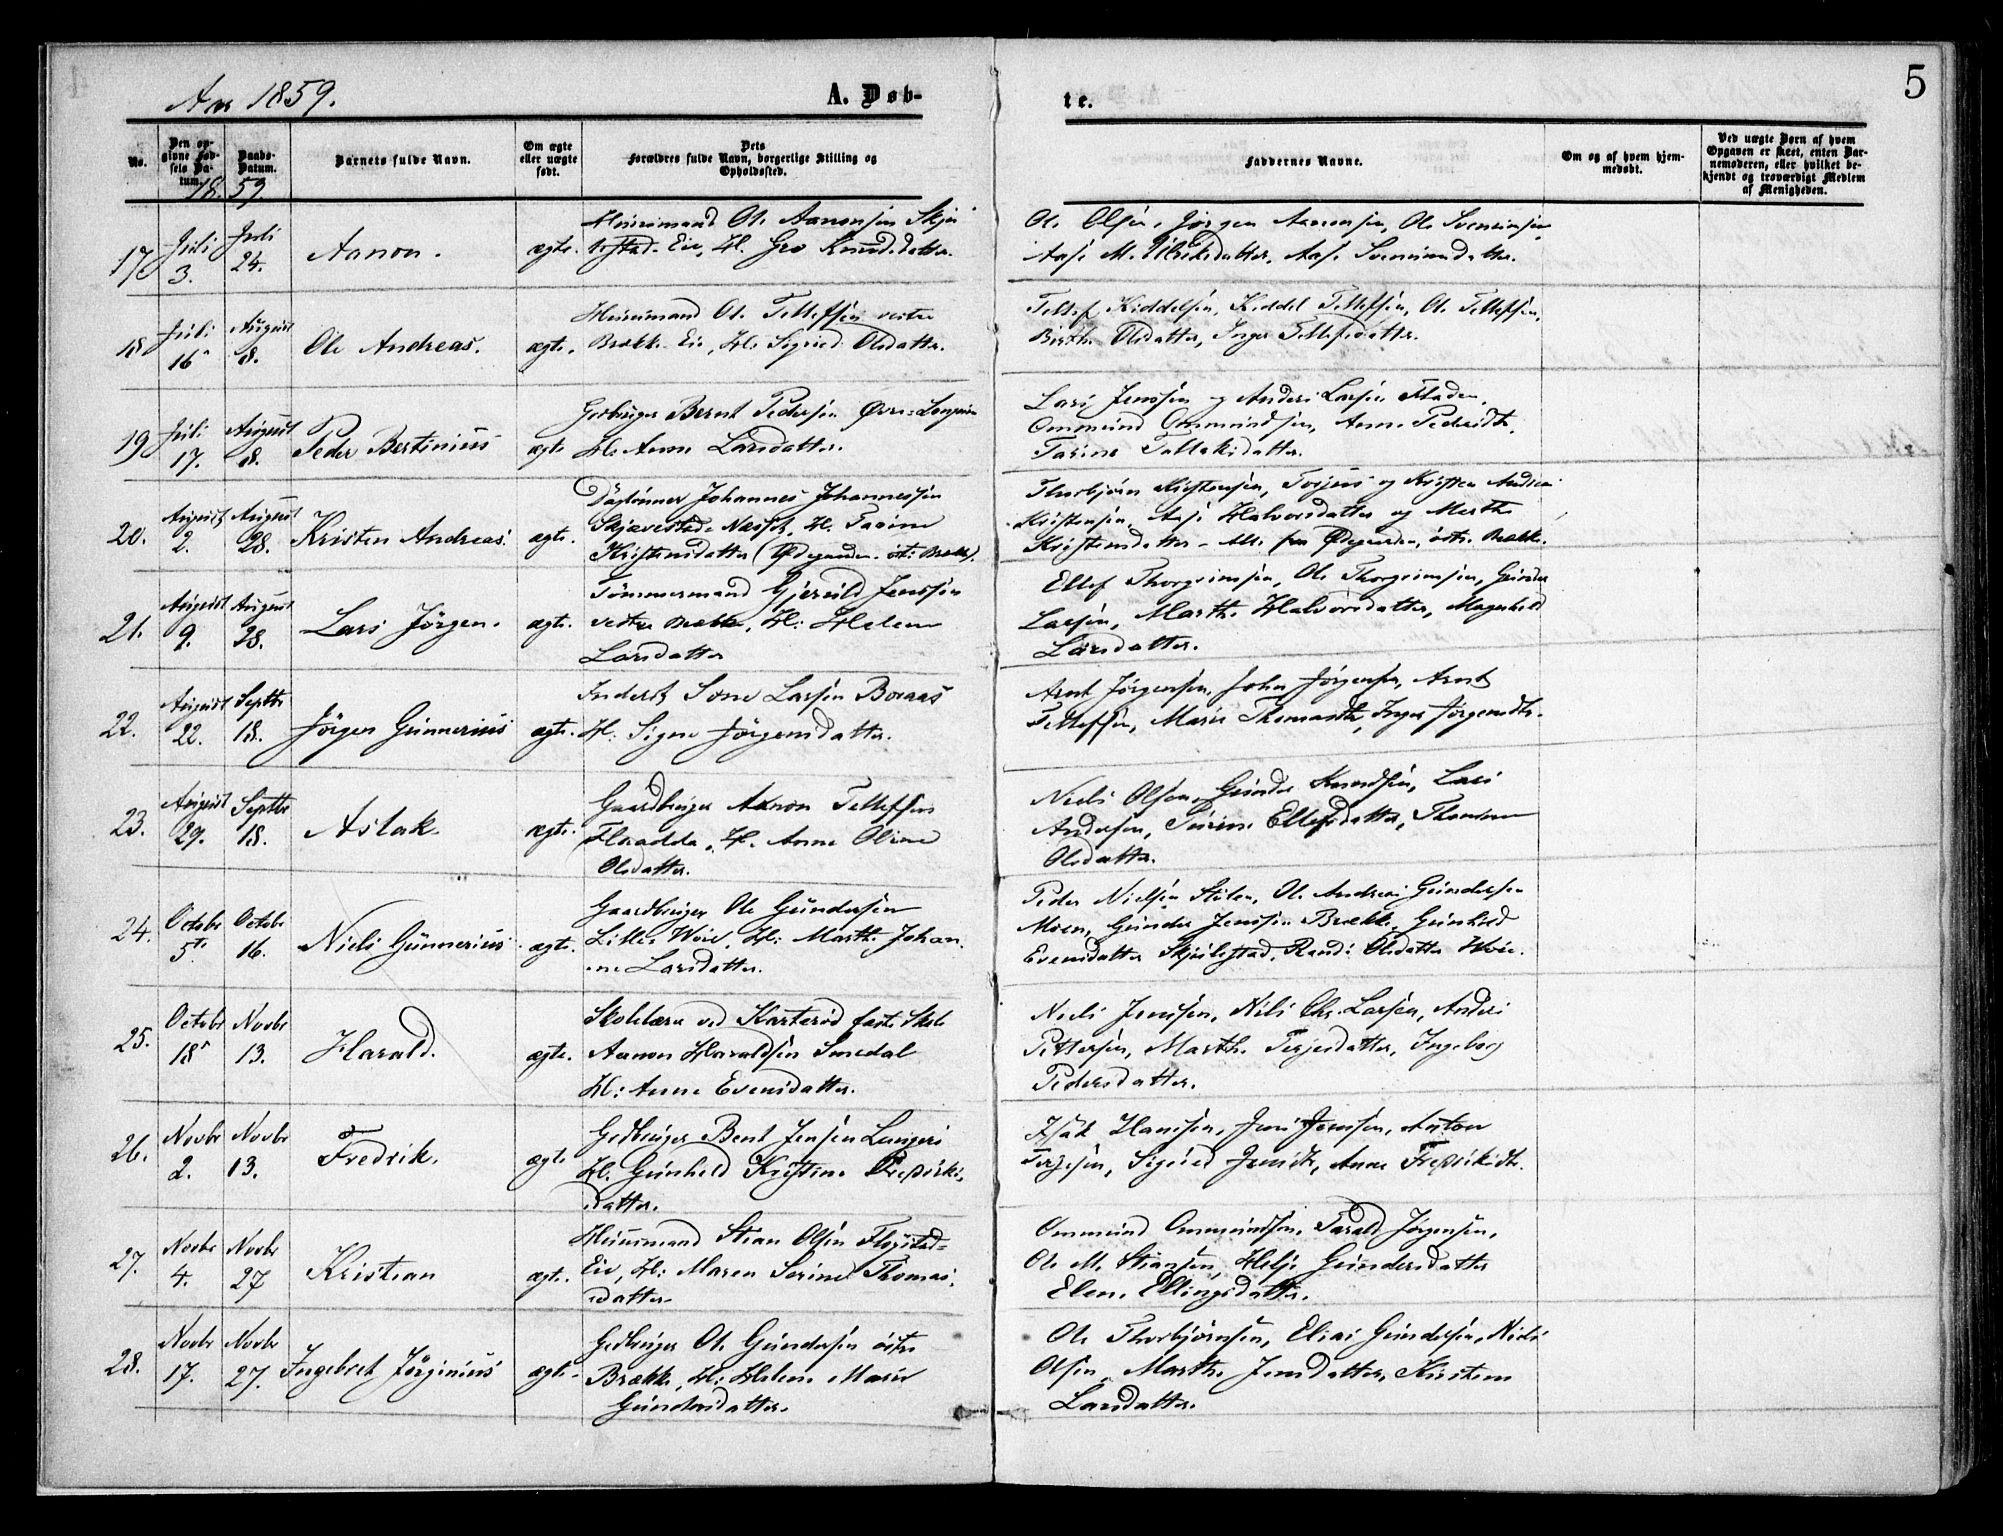 5
Aar 1859.
A. Døb-
te.
No.
Den op-
givne Fød-
sels Da-
tum.
Daabs-
Datum.
Barnets fulde Navn.
Om ægte
eller uægte
født.
Dets
Forældres fulde Navn, borgerlige Stilling og
Opholdssted.
Faddernes Navne.
Om og af hvem hjem-
medøbt.
Ved uægte Børn af hvem
Opgaven er skeet, enten Bar-
nemoderen, eller hvilket be-
kjendt og troværdigt Medlem
af Menigheden.
18 59.
17
Juli
3.
Juli
24.
Aanon.
ægte.
Huusmand Ole Aanonsen
Eie, H. Gro Knudsdatter.
Ole Olsen, Jörgen Aanonsen, Ole Svennungsen
Aase M. Ulriksdatter, Aase
18
Juli
16
August
18.
Ole Andreas.
ægte.
Huusmand Ole Tellefsen vestre
Brække Eie, H. Sigrid Olsdatter.
Tellef Kiddelsen, Kiddel Tellefsen, Ole Tellefsen,
Birthe Olsdatter, Inger Tellefsdatter.
19
Juli
17.
August
18.
Peder Bertinius
ægte
Gaardbruger Bernt Pedersen Øvre-
H: Anne Larsdatter.
Lars Jenssen og Anders Larsen
Ommund Ommundsen, Anne Pedersdtr,
Tarine Tallaksdatter.
20.
August
2.
August
28.
Kristen Andreas.
ægte.
Daglönner Johannes Johannessen
Skjævestad, H. Tarine
Kristensdatter (Ødegaarden östre Brække).
Thorbjörn Kristensen, og Kristen Andreas
Kristensen, Aase Halvorsdatter og Marthe
Kristensdatter - Alle fra Ødegaarden, östre Brække.
21.
August
9.
August
28.
Lars Jörgen.
ægte.
Tömmermand Gjeruld Jenssen
vestre Brække, H: Helene
Larsdatter
Ellef Thorgrimsen, Ole Thorgrimsen, Gunder
Larsen, Marthe Halvorsdatter, Magnhild
Larsdatter.
22.
August
22.
Septbr
18.
Jörgen Gunnerius
ægte.
Inderst Larsen Boraas
H: Signe Jörgensdatter.
Arnt Jörgensen, John Jörgensen, Arnt
Tellefsen, Marie Thomasdtr, Inger Jörgensdtr.
23.
August
29.
Septbr
18.
Aslak
ægte.
Gaardbruger Aanon Tellefsen
Flaadda, H. Anne Oline
Olsdatter.
Niels Olsen, Gunder Knudsen, Lars
Andersen, Ellefsdatter,
Olsdatter.
24.
Octobr
5te
Octobr
16.
Niels Gunnerius
ægte.
Gaardbruger Ole Gundersen
Lille-, H: Marthe Johan-
ne Larsdatter.
Peder Nielsen Stölen, Ole Andreas Gundersen
Moen, Gunder Jenssen Brække, Gunhild
Evensdatter Skjulestad, Randi Olsdatter
25.
Octobr
18
Novbr
13.
Harald.
ægte.
Skolelærer ved faste Skole
Aanon Haraldsen Smedal
H: Anne Evensdatter.
Niels Jenssen, Nils Chr. Larsen, Anders
Pettersen, Marthe Terjesdatter, Ingeborg
Pedersdatter.
26.
Novbr
2.
Novbr
13.
Fredrik.
ægte
Gdbruger Bent Jensen
H. Gunhild Kristine Fredriks-
datter.
Isak Hanssen, Jens Jenssen, Anton
Terjesen, Sigrid Jensdtr, Anne Fredriksdtr.
27.
Novbr
4.
Novbr
27
Kristian
ægte.
Huusmand Stian Olsen
Eie, H: Maren Serine Thomas-
datter
Ommund Ommundsen, Tarald Jörgensen,
Ole M. Stiansen, Helje Gundersdatter
Elene Ellingsdatter.
28.
Novbr
17.
Novbr
27.
Ingebret Jörginius
ægte.
Gdbruger Ole Gundersen östre
Brække, H: Helene Marie
Gundersdatter.
Ole Thorbjörnsen, Elias Gundersen, Niels
Olsen, Marthe Jensdatter, Kirstene
Larsdatter.